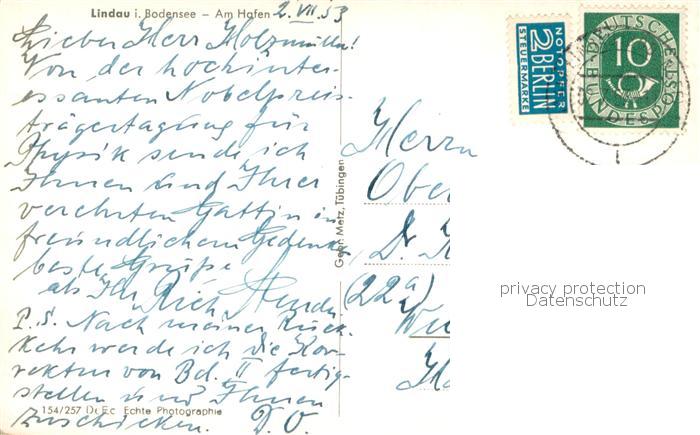 Lindau i. Bodensee – Am Hafen 2. VII. 53
Lieber Herr Holzmüller!
Von der hochinter-
essanten Nobelpreis-
trägertagung für
Physik sende ich
Ihnen und Ihrer
verehrten Gattin in
freundlichem Gedenken
beste Grüße
als Ihr Rich.
P.S. Nach meiner Rück-
kehr werde ich die Kor-
rektur von Bd. II fertig-
stellen und Ihnen
zuschicken. D. O.
154/257 Echte Photographie
Gebr. Metz, Tübingen
NOTOPFER
2 BERLIN
STEUERMARKE
DEUTSCHE BUNDESPOST
10
Herrn
Ober
D.
(22a)
privacy protection
Datenschutz